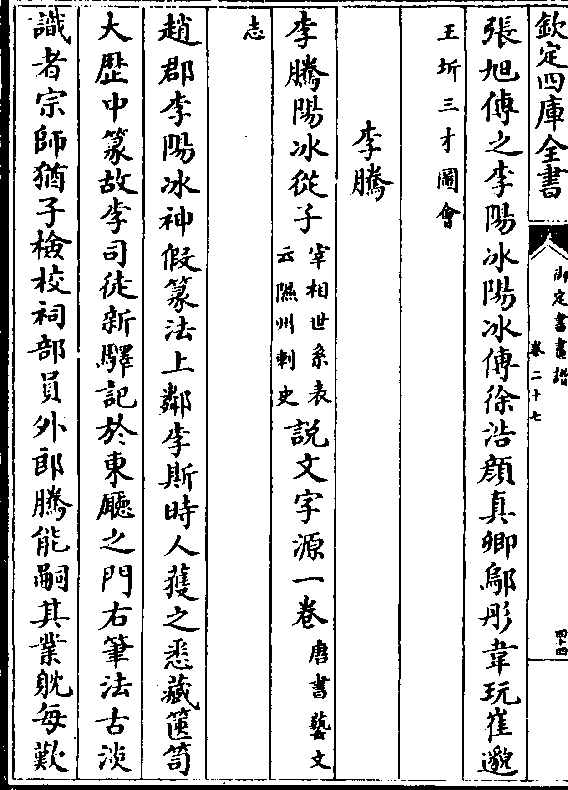 欽定四庫全書
御定書畫譜
卷二十七
四十四
張旭傳之李陽冰陽冰傳徐浩顔真卿鄔彤韋玩崔邈
王圻三才圖會
李騰
李騰陽冰從子宰相世系表云隰州刺史説文字源一卷唐書藝文
志
趙郡李陽冰神假篆法上鄰李斯時人蒦之悉藏篋笥
大歴中篆故李司徒新驛記於東廳之門右筆法古淡
識者宗師猶子檢校祠部員外郎騰能嗣其業躭每歎